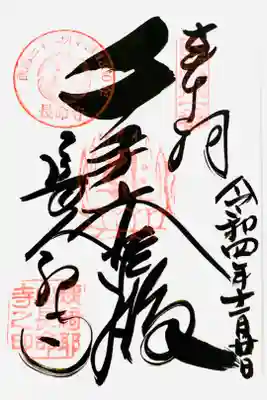 奉拝
千手大悲殿
長命寺
令和四年十二月廿日
長命寺
寺之印